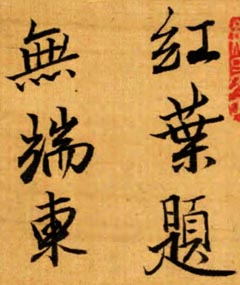 紅葉題
無端東